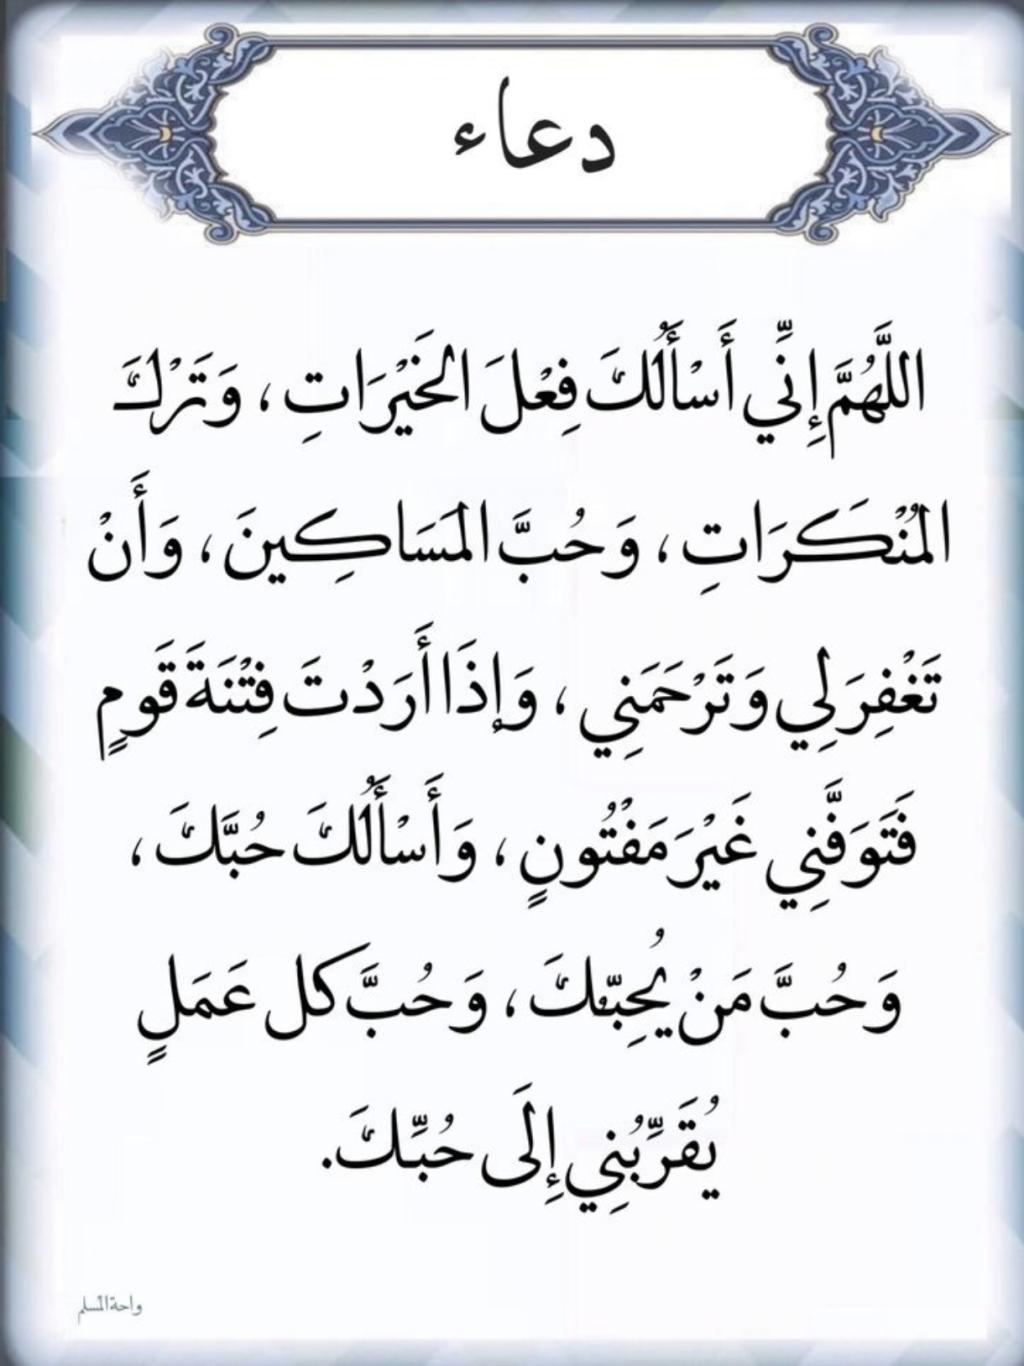 دعاء
اللَّهُمَّ إِنِّي أَسْأَلُكَ فِعْلَ الخَيْرَاتِ ، وَتَرْكَ
المُنْكَرَاتِ ، وَحُبَّ المَسَاكِينَ ، وَأَنْ
تَغْفِرَ لِي وَتَرْحَمَنِي ، وَإِذَا أَرَدْتَ فِتْنَةَ قَومٍ
فَتَوَفَّنِي غَيْرَ مَفْتُونٍ ، وَأَسْأَلُكَ حُبَّكَ ،
وَحُبَّ مَنْ يُحِبّكَ ، وَحُبَّ كل عَمَلٍ
يُقَرِّبُنِي إِلَى حُبِّكَ.
واحة المسلم